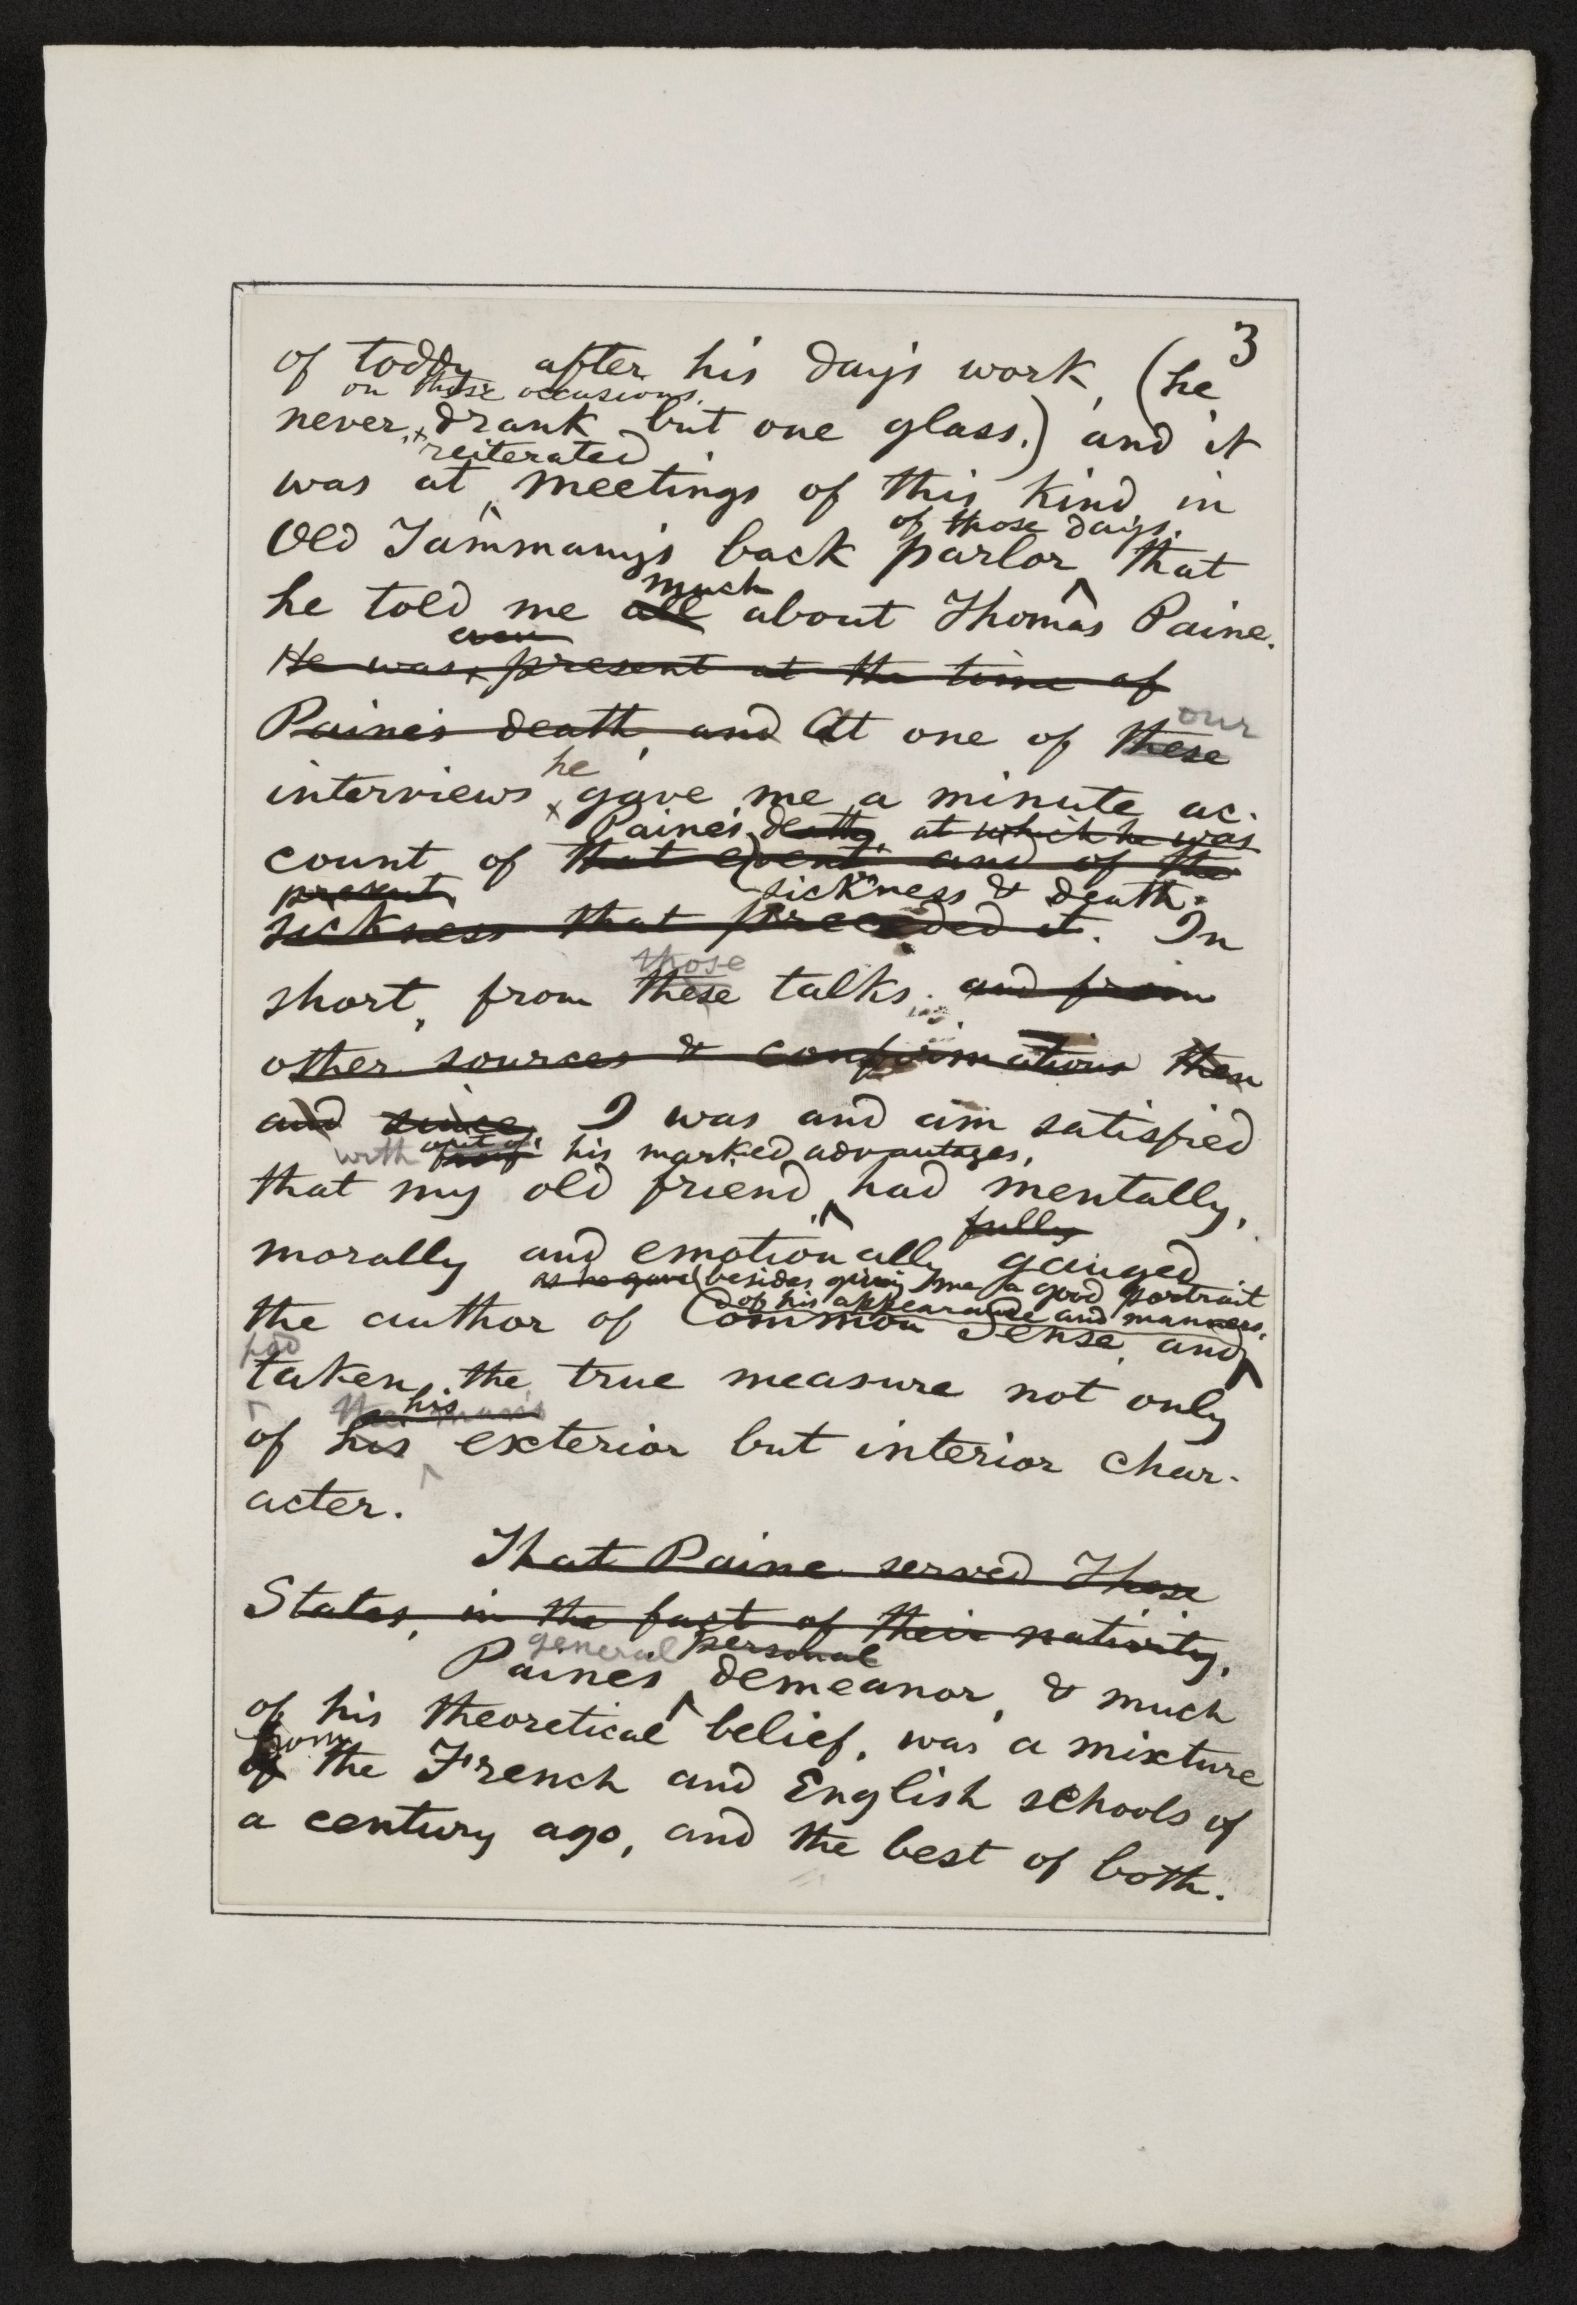 3
of toddy after his day's work, (he
on these occasions,
never drank but one glass.) and it
reiterated
was at meetings of this kind in
of those days,
Old Tammany's back parlor that
much
he told me all about Thomas Paine.
even
He was present at the time of
our
Paine's death, and At one of these
he
interviews gave me a minute ac-
Paine's death, at which he was
count of that event and of the
present sickness & death.
sickness that preceded it. In
those
short, from these talks, and from
other sources & confirmations then
and since, I was and am satisfied
with out of his marked advantages,
that my old friend had mentally,
fully
morally and emotionally gauged
as he gave (besides giving me a good portrait
of his appearance and manners,
the author of Common Sense, and
had
taken the true measure not only
the man's his
of his exterior but interior char-
acter.
That Paine served These
States, in the fact of their nativity,
general personal
Paine's demeanor, & much
of his theoretical belief, was a mixture
from
of the French and English schools of
a century ago, and the best of both.